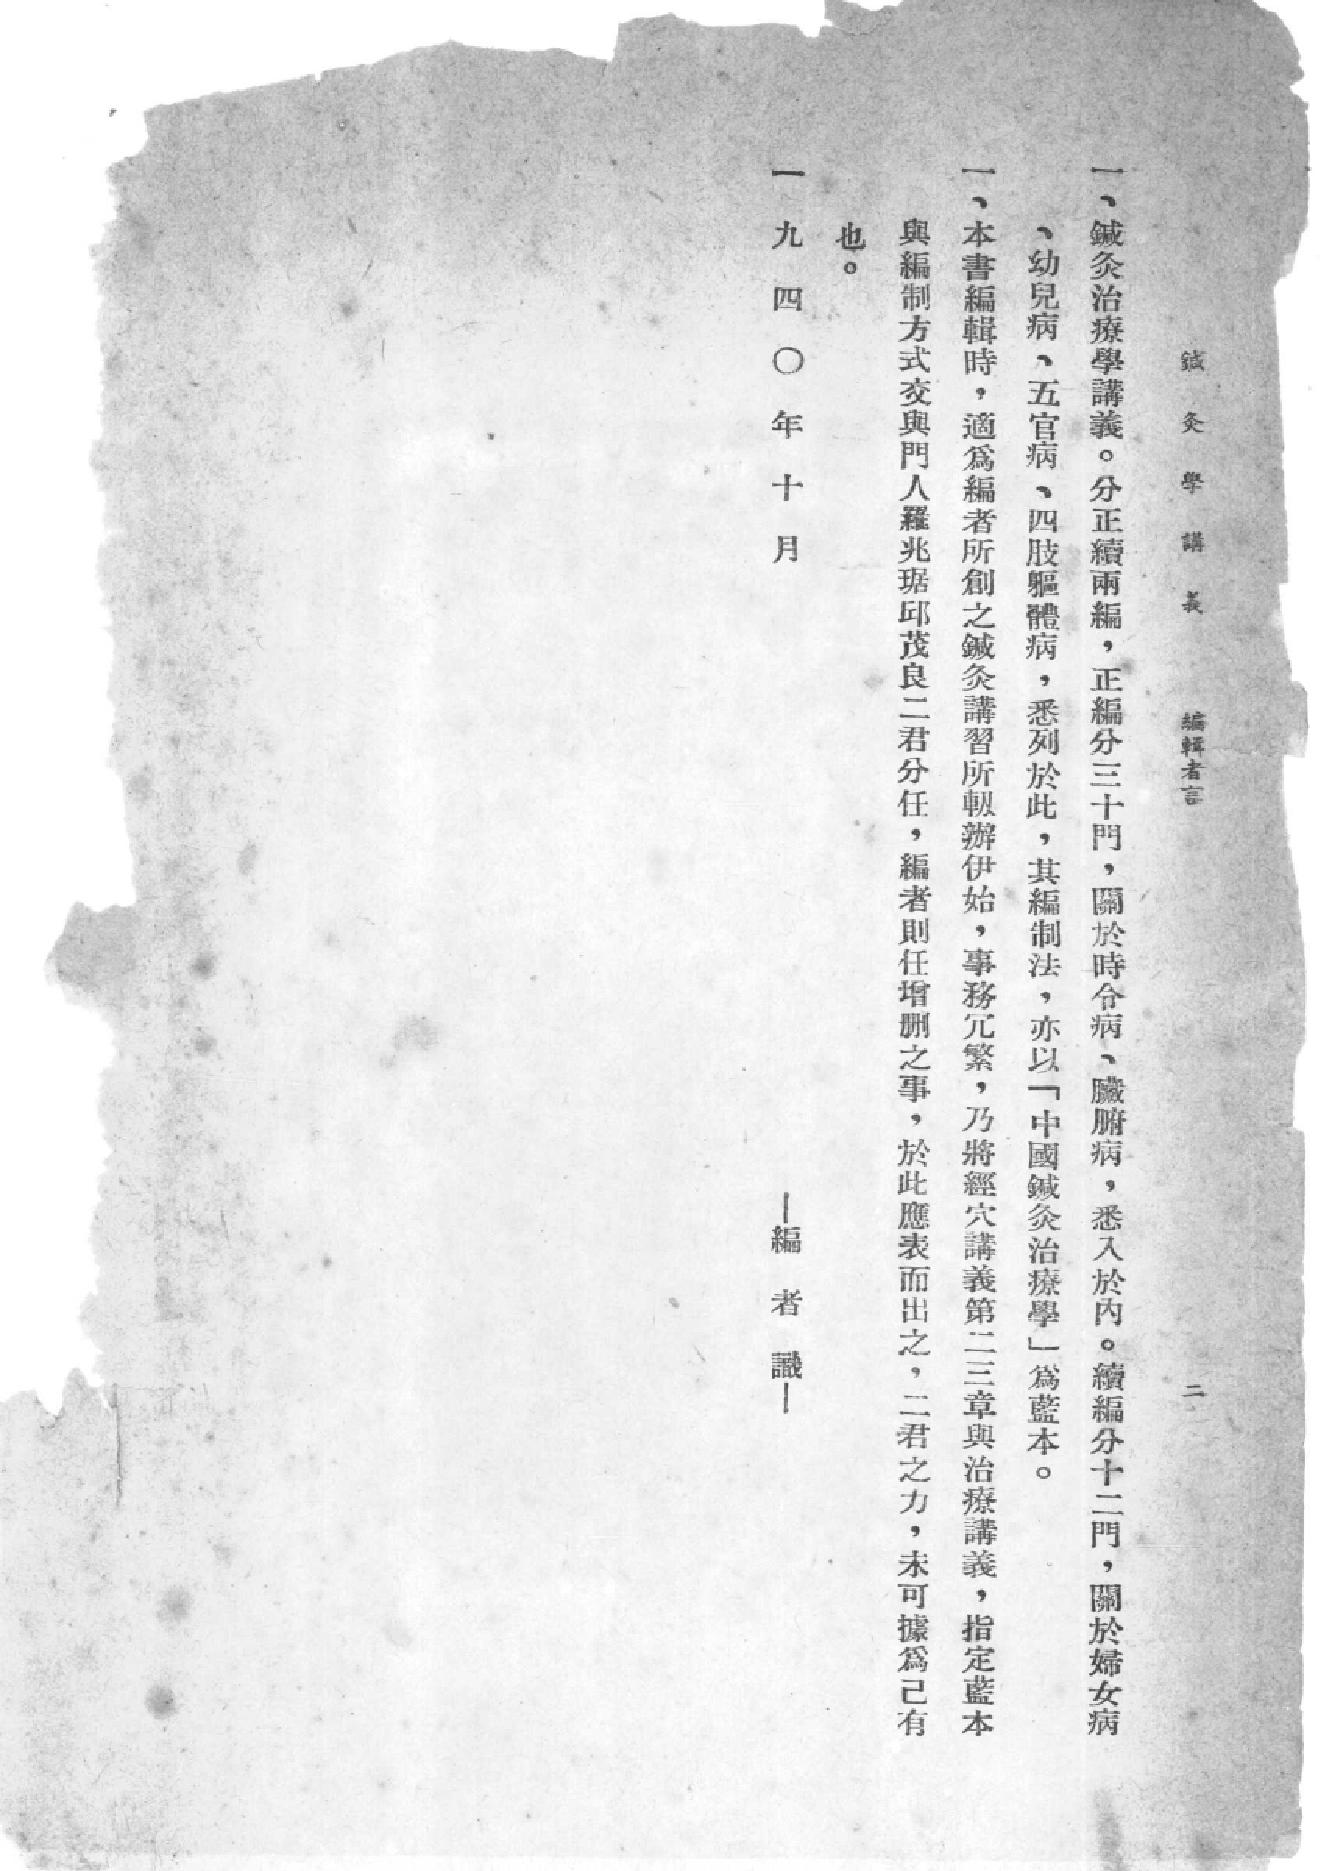 鍼灸學講義　編輯者言　二
一、鍼灸治療學講義。分正續兩編，正編分三十門，關於時令病、臟腑病，悉入於內。續編分十二門，關於婦女病
、幼兒病、五官病、四肢軀體病，悉列於此，其編制法，亦以「中國鍼灸治療學」爲藍本。
一、本書編輯時，適爲編者所創之鍼灸講習所剏辦伊始，事務冗繁，乃將經穴講義第二三章與治療講義，指定藍本
與編制方式交與門人羅兆琚邱茂良二君分任，編者則任增刪之事，於此應表而出之，二君之力，未可據爲己有
也。
一九四〇年十月　—編者識—